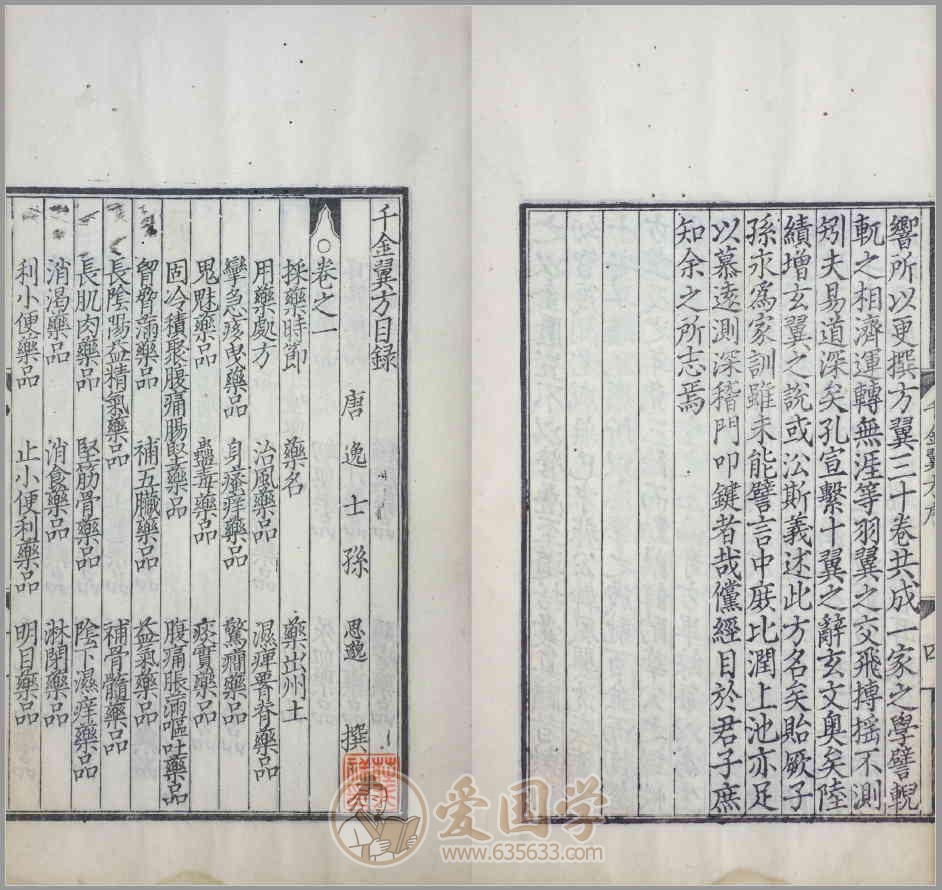 響所以更撰方翼三十卷共成一家之學譬輗
軏之相濟運轉無涯等羽翼之交飛摶搖不測
矧夫易道深矣孔宣繫十翼之辭玄文奧矣陸
績增玄翼之說或沿斯義述此方名矣貽厥子
孫永為家訓雖未能譬言中庶比潤上池亦足
以慕遠測深稽門叩鍵者哉儻經目於君子庶
知余之所志焉
千金翼方序
四
千金翼方目録
唐逸士孫思邈撰
卷之一
採藥時節 藥名 藥出州土
用藥處方 治風藥品 濕痺腰脊藥品
攣急𤸷曳藥品 身瘙痒藥品 驚癇藥品
鬼魅藥品 蠱毒藥品 痰實藥品
固冷積聚腹痛腸堅藥品 腹痛脹滿嘔吐藥品
胷脅滿藥品 補五臟藥品 益氣藥品
長陰陽益精氣藥品 補骨髓藥品
長肌肉藥品 堅筋骨藥品 陰下濕痒藥品
消渴藥品 消食藥品 淋閉藥品
利小便藥品 止小便利藥品 明目藥品
爱国学
www.635633.com